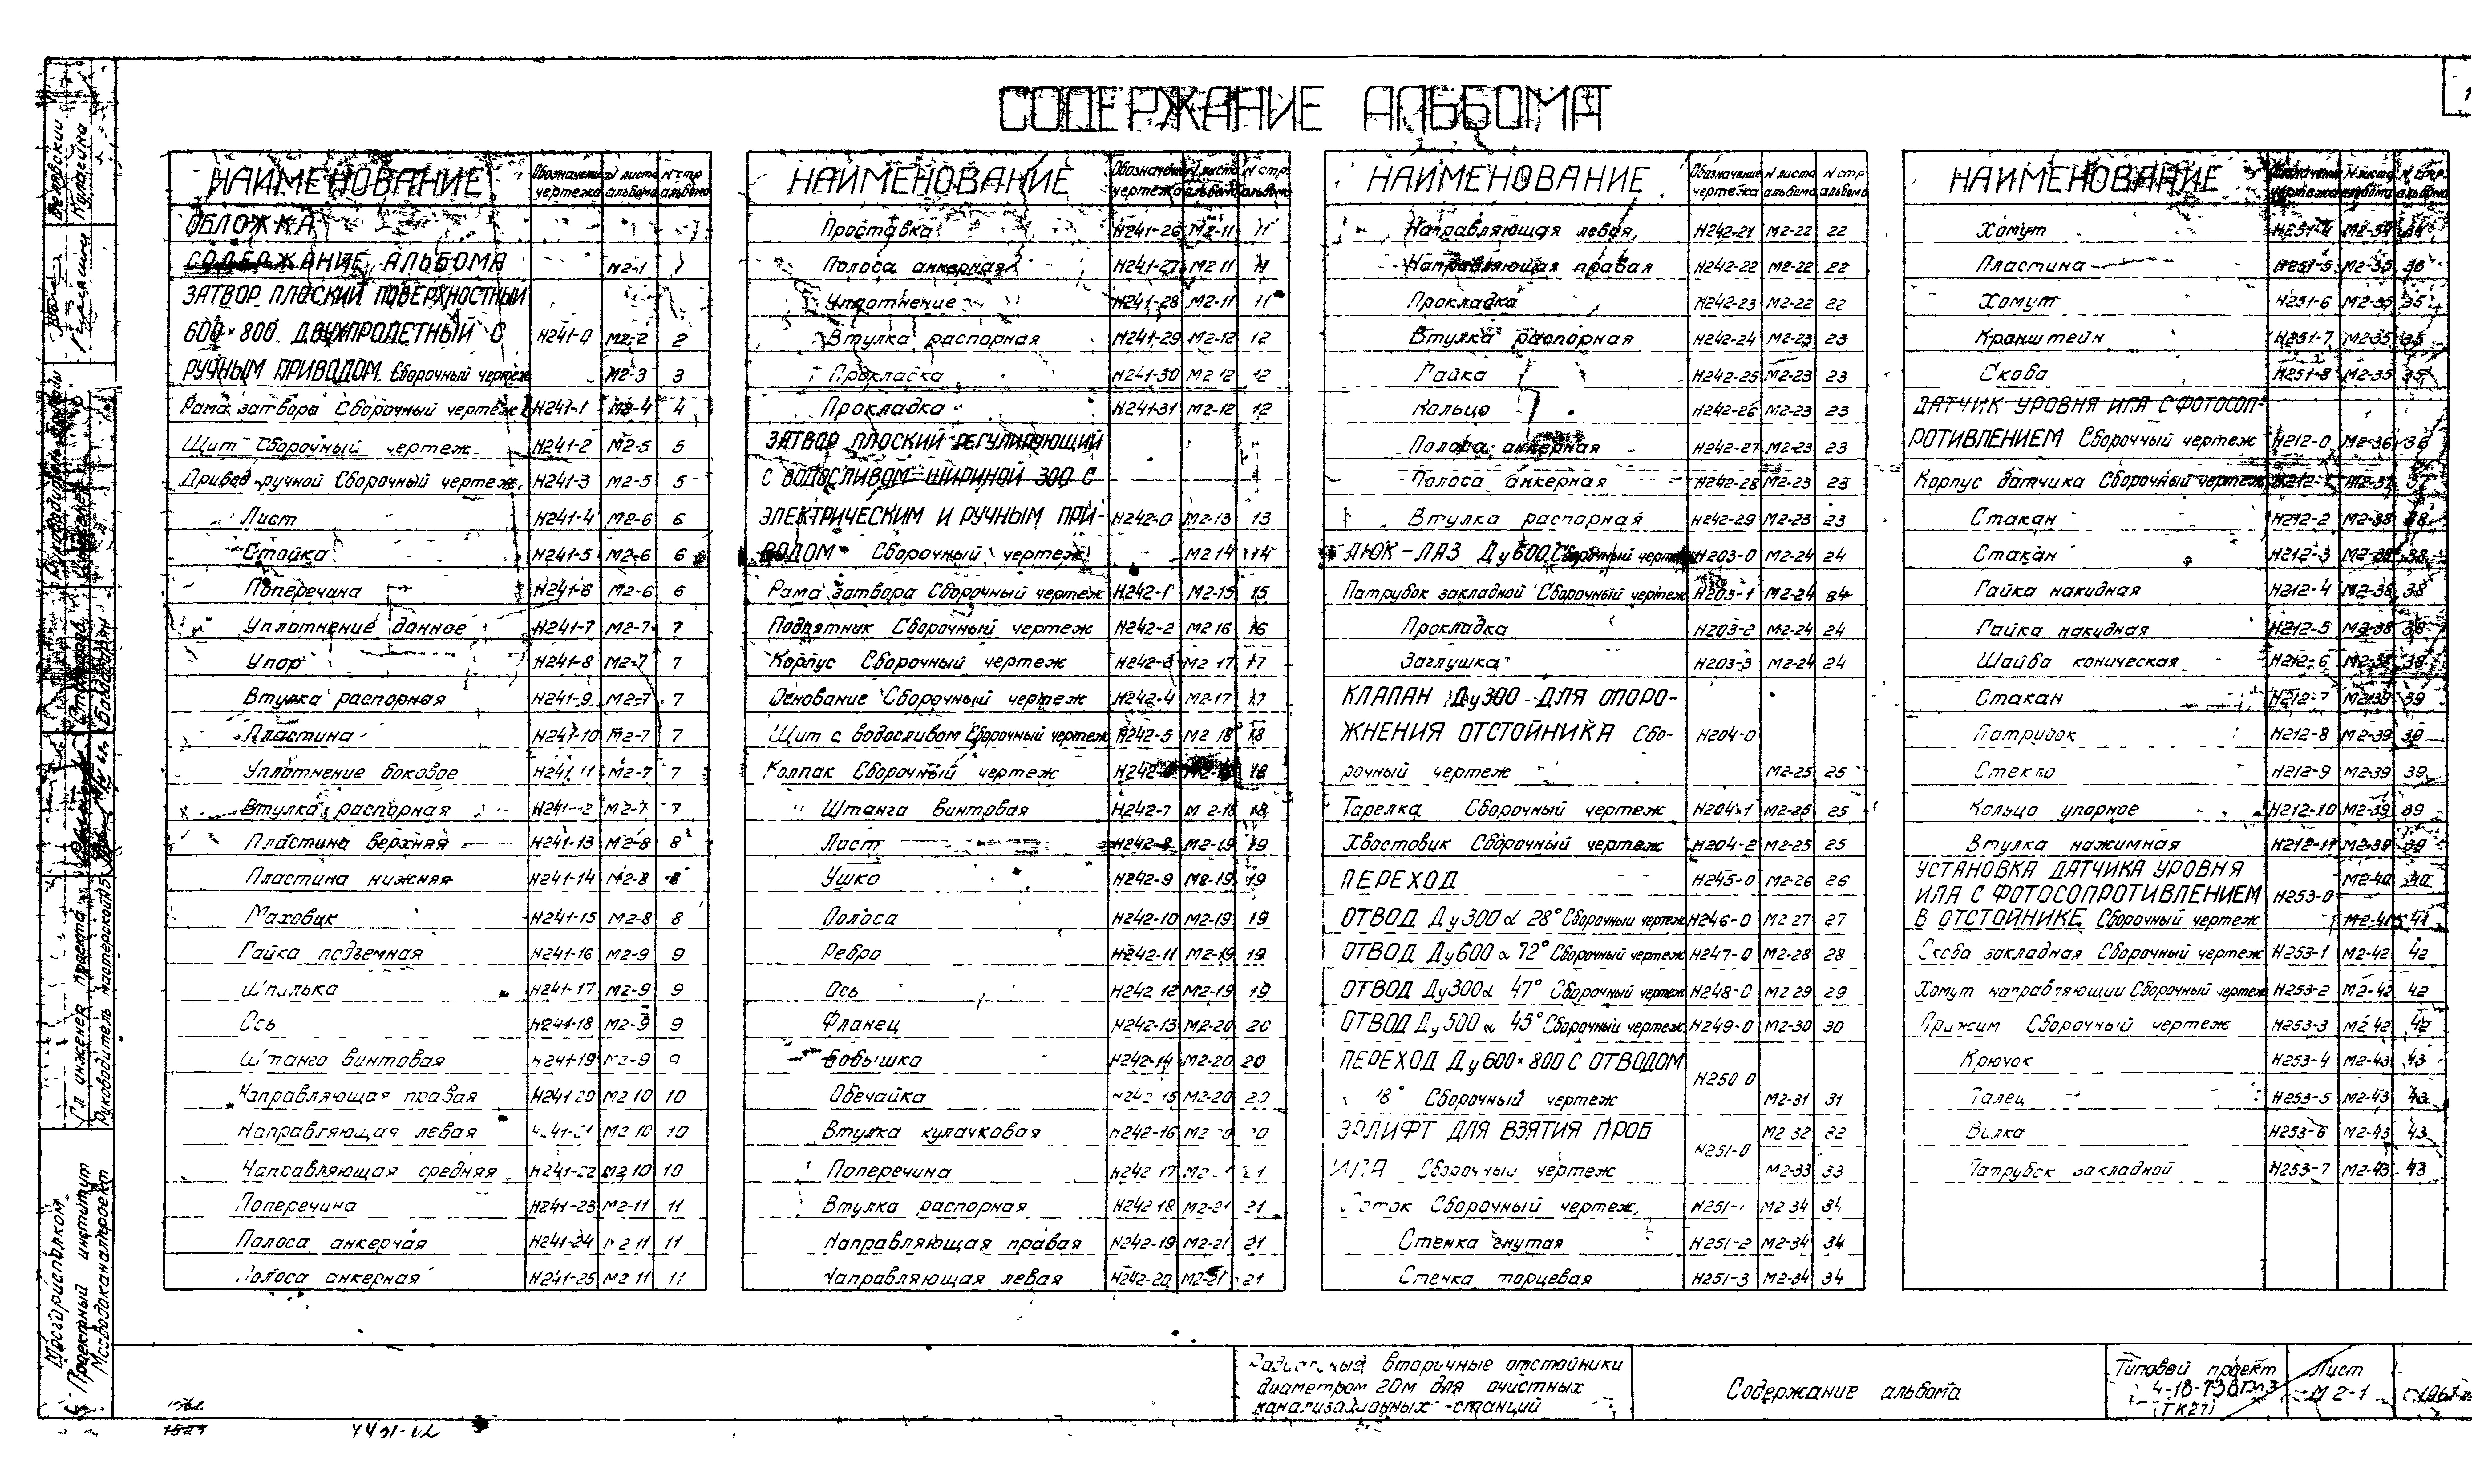 СОДЕРЖАНИЕ АЛЬБОМА
НАИМЕНОВАНИЕ Обозначение чертежа N листа альбома N стр альбома
ОБЛОЖКА
СОДЕРЖАНИЕ АЛЬБОМА М2-1 1
ЗАТВОР ПЛОСКИЙ ПОВЕРХНОСТНЫЙ
600×800 ДВУХПРОЛЕТНЫЙ С Н241-0 М2-2 2
РУЧНЫМ ПРИВОДОМ Сборочный чертеж М2-3 3
Рама затвора Сборочный чертеж Н241-1 М2-4 4
Щит Сборочный чертеж Н241-2 М2-5 5
Привод ручной Сборочный чертеж Н241-3 М2-5 5
Лист Н241-4 М2-6 6
Стойка Н241-5 М2-6 6
Поперечина Н241-6 М2-6 6
Уплотнение донное Н241-7 М2-7 7
Упор Н241-8 М2-7 7
Втулка распорная Н241-9 М2-7 7
Пластина Н241-10 М2-7 7
Уплотнение боковое Н241 11 М2-7 7
Втулка распорная М2-7 7
Пластина верхняя Н241-13 М2-8 8
Пластина нижняя Н241-14 М2-8 8
Маховик Н241-15 М2-8 8
Гайка подъемная Н241-16 М2-9 9
Шпилька Н241-17 М2-9 9
Ось Н241-18 М2-9 9
Штанга винтовая Н241-19 М2-9 9
Направляющая правая Н241 20 М2 10 10
Направляющая левая М2 10 10
Направляющая средняя Н241-22 М2 10 10
Поперечина Н241-23 М2-11 11
Полоса анкерная Н241-24 М2 11 11
Полоса анкерная Н241-25 М2 11 11
НАИМЕНОВАНИЕ Обозначение чертежа N листа альбома N стр альбома
Проставка Н241-26 М2-11 11
Полоса анкерная Н241-27 М2 11 11
Уплотнение Н241-28 М2-11 11
Втулка распорная Н241-29 М2-12 12
Прокладка Н241-30 М2 12 12
Прокладка Н241-31 М2-12 12
ЗАТВОР ПЛОСКИЙ РЕГУЛИРУЮЩИЙ
С ВОДОСЛИВОМ ШИРИНОЙ 300 С
ЭЛЕКТРИЧЕСКИМ И РУЧНЫМ ПРИ- Н242-0 М2-13 13
ВОДОМ Сборочный чертеж М2 14 14
Рама затвора Сборочный чертеж Н242-1 М2-15 15
Подпятник Сборочный чертеж Н242-2 М2 16 16
Корпус Сборочный чертеж Н242-3 М2 17 17
Основание Сборочный чертеж Н242-4 М2-17 17
Щит с водосливом Сборочный чертеж Н242-5 М2 18 18
Колпак Сборочный чертеж 18
Штанга винтовая Н242-7 М 2-18 18
Лист Н242-8 М2-19 19
Ушко Н242-9 М2-19 19
Полоса Н242-10 М2-19 19
Ребро Н242-11 М2-19 19
Ось Н242 12 М2-19 19
Фланец Н242-13 М2-20 20
Бобышка Н242-14 М2-20 20
Обечайка Н242 15 М2-20 20
Втулка кулачковая Н242-16
Поперечина Н242 17
Втулка распорная Н242 18 М2-21 21
Направляющая правая Н242-19 М2-21 21
Направляющая левая Н242-20 М2-21 21
НАИМЕНОВАНИЕ Обозначение чертежа N листа альбома N стр альбома
Направляющая левая Н242-21 М2-22 22
Направляющая правая Н242-22 М2-22 22
Прокладка Н242-23 М2-22 22
Втулка распорная Н242-24 М2-23 23
Гайка Н242-25 М2-23 23
Кольцо Н242-26 М2-23 23
Полоса анкерная Н242-27 М2-23 23
Полоса анкерная Н242-28 М2-23 23
Втулка распорная Н242-29 М2-23 23
ЛЮК-ЛАЗ Ду600 Сборочный чертеж Н203-0 М2-24 24
Патрубок закладной Сборочный чертеж Н203-1 М2-24 24
Прокладка Н203-2 М2-24 24
Заглушка Н203-3 М2-24 24
КЛАПАН Ду300 ДЛЯ ОПОРО-
ЖНЕНИЯ ОТСТОЙНИКА Сбо- Н204-0
рочный чертеж М2-25 25
Тарелка Сборочный чертеж Н204-1 М2-25 25
Хвостовик Сборочный чертеж Н204-2 М2-25 25
ПЕРЕХОД Н245-0 М2-26 26
ОТВОД Ду300 α 28° Сборочный чертеж Н246-0 М2 27 27
ОТВОД Ду600 α 72° Сборочный чертеж Н247-0 М2-28 28
ОТВОД Ду300 α 47° Сборочный чертеж Н248-0 М2 29 29
ОТВОД Ду500 α 45° Сборочный чертеж Н249-0 М2-30 30
ПЕРЕХОД Ду600×800 С ОТВОДОМ Н250 0
18° Сборочный чертеж М2-31 31
ЭРЛИФТ ДЛЯ ВЗЯТИЯ ПРОБ М2 32 32
ИЛА Сборочный чертеж Н251-0 М2-33 33
Сборочный чертеж М2 34 34
Стенка гнутая Н251-2 М2-34 34
Стенка торцевая Н251-3 М2-34 34
НАИМЕНОВАНИЕ Обозначение чертежа N листа альбома N стр альбома
Хомут Н251-4 М2-34 34
Пластина Н251-5 М2-35
Хомут Н251-6 М2-35 35
Кронштейн Н251-7 М2-35 35
Скоба Н251-8 М2-35 35
ДАТЧИК УРОВНЯ ИЛА С ФОТОСОП-
РОТИВЛЕНИЕМ Сборочный чертеж Н212-0 М2-36 36
Корпус датчика Сборочный чертеж Н212-1 М2-37 37
Стакан Н212-2 М2-38 38
Стакан Н212-3 М2-38 38
Гайка накидная Н212-4 М2-38 38
Гайка накидная Н212-5 М2-38 38
Шайба коническая Н212-6 М2-38 38
Стакан Н212-7 М2-39 39
Патрубок Н212-8 М2-39 39
Стекло Н212-9 М2-39 39
Кольцо упорное Н212-10 М2-39 39
Втулка нажимная Н212-11 М2-39 39
УСТАНОВКА ДАТЧИКА УРОВНЯ М2-40 40
ИЛА С ФОТОСОПРОТИВЛЕНИЕМ Н253-0
В ОТСТОЙНИКЕ Сборочный чертеж М2-41 41
Скоба закладная Сборочный чертеж Н253-1 М2-42 42
Хомут направляющий Сборочный чертеж Н253-2 М2-42 42
Прижим Сборочный чертеж Н253-3 М2 42 42
Крючок Н253-4 М2-43 43
Палец Н253-5 М2-43 43
Вилка Н253-6 М2-43 43
Патрубок закладной Н253-7 М2-43 43
Мосгорисполком
Проектный институт
Мосводоканалпроект
Гл инженер проекта
Руководитель мастерской
Радиальные вторичные отстойники
диаметром 20м для очистных
канализационных станций
Содержание альбома
Типовой проект
(ТК21)
Лист
М 2-1